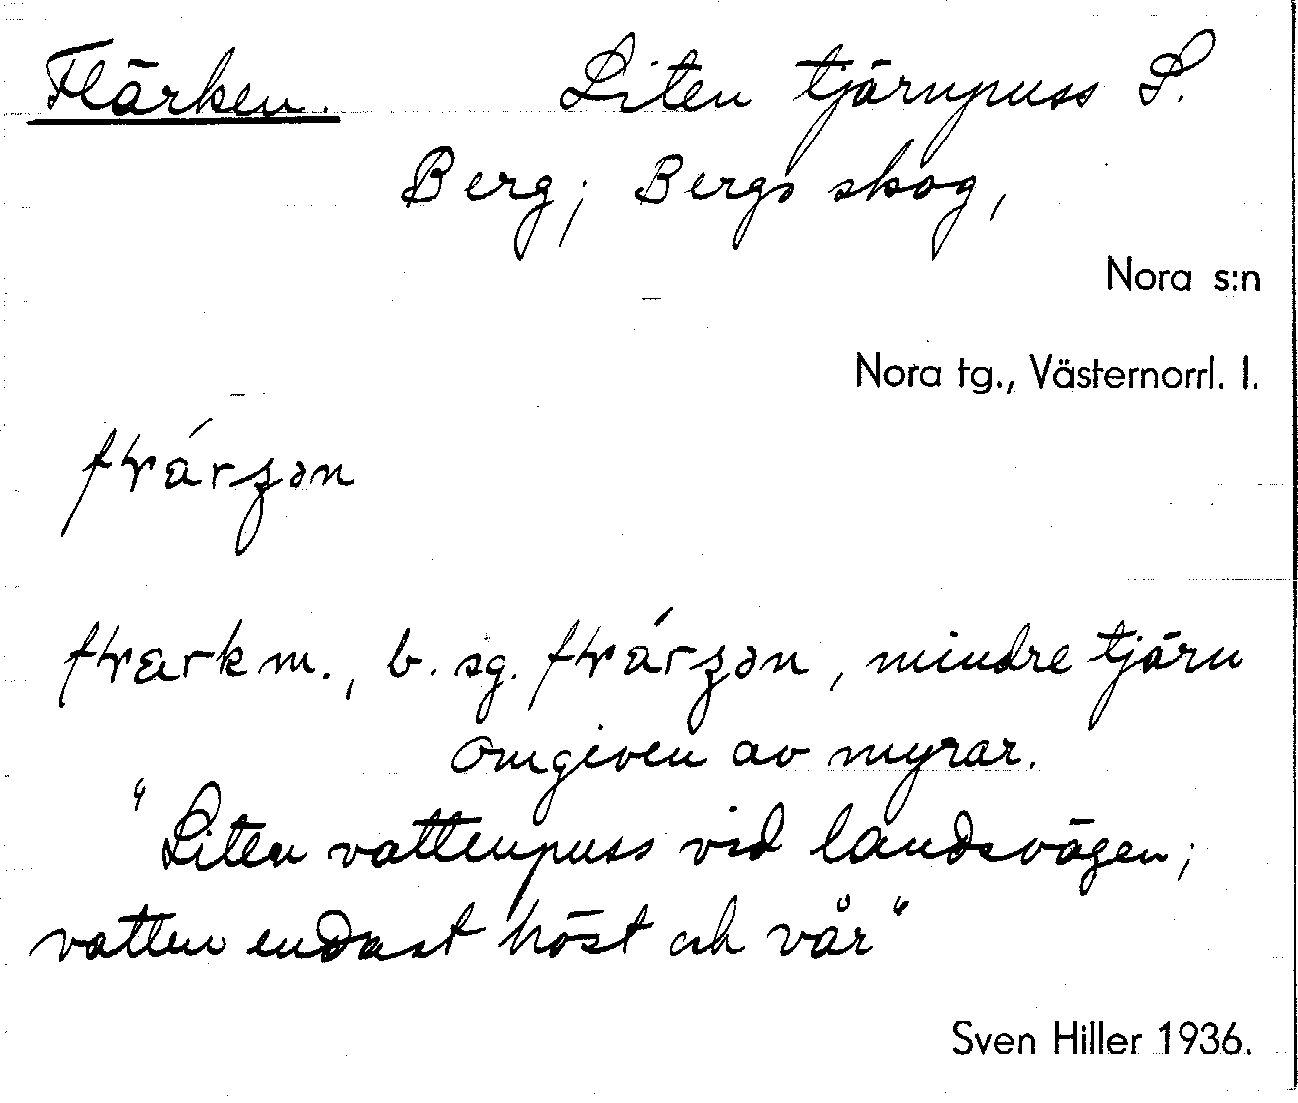 Flärken. Liten tjärnpuss S.
Berg; Bergs skog,
Nora s:n
Nora tg., Västernorrl. l.
mindre tjärn
m., b. sg.
omgiven av myrar.
"Liten vattenpuss vid landsvägen;
vatten endast höst och vår"
Sven Hiller 1936.